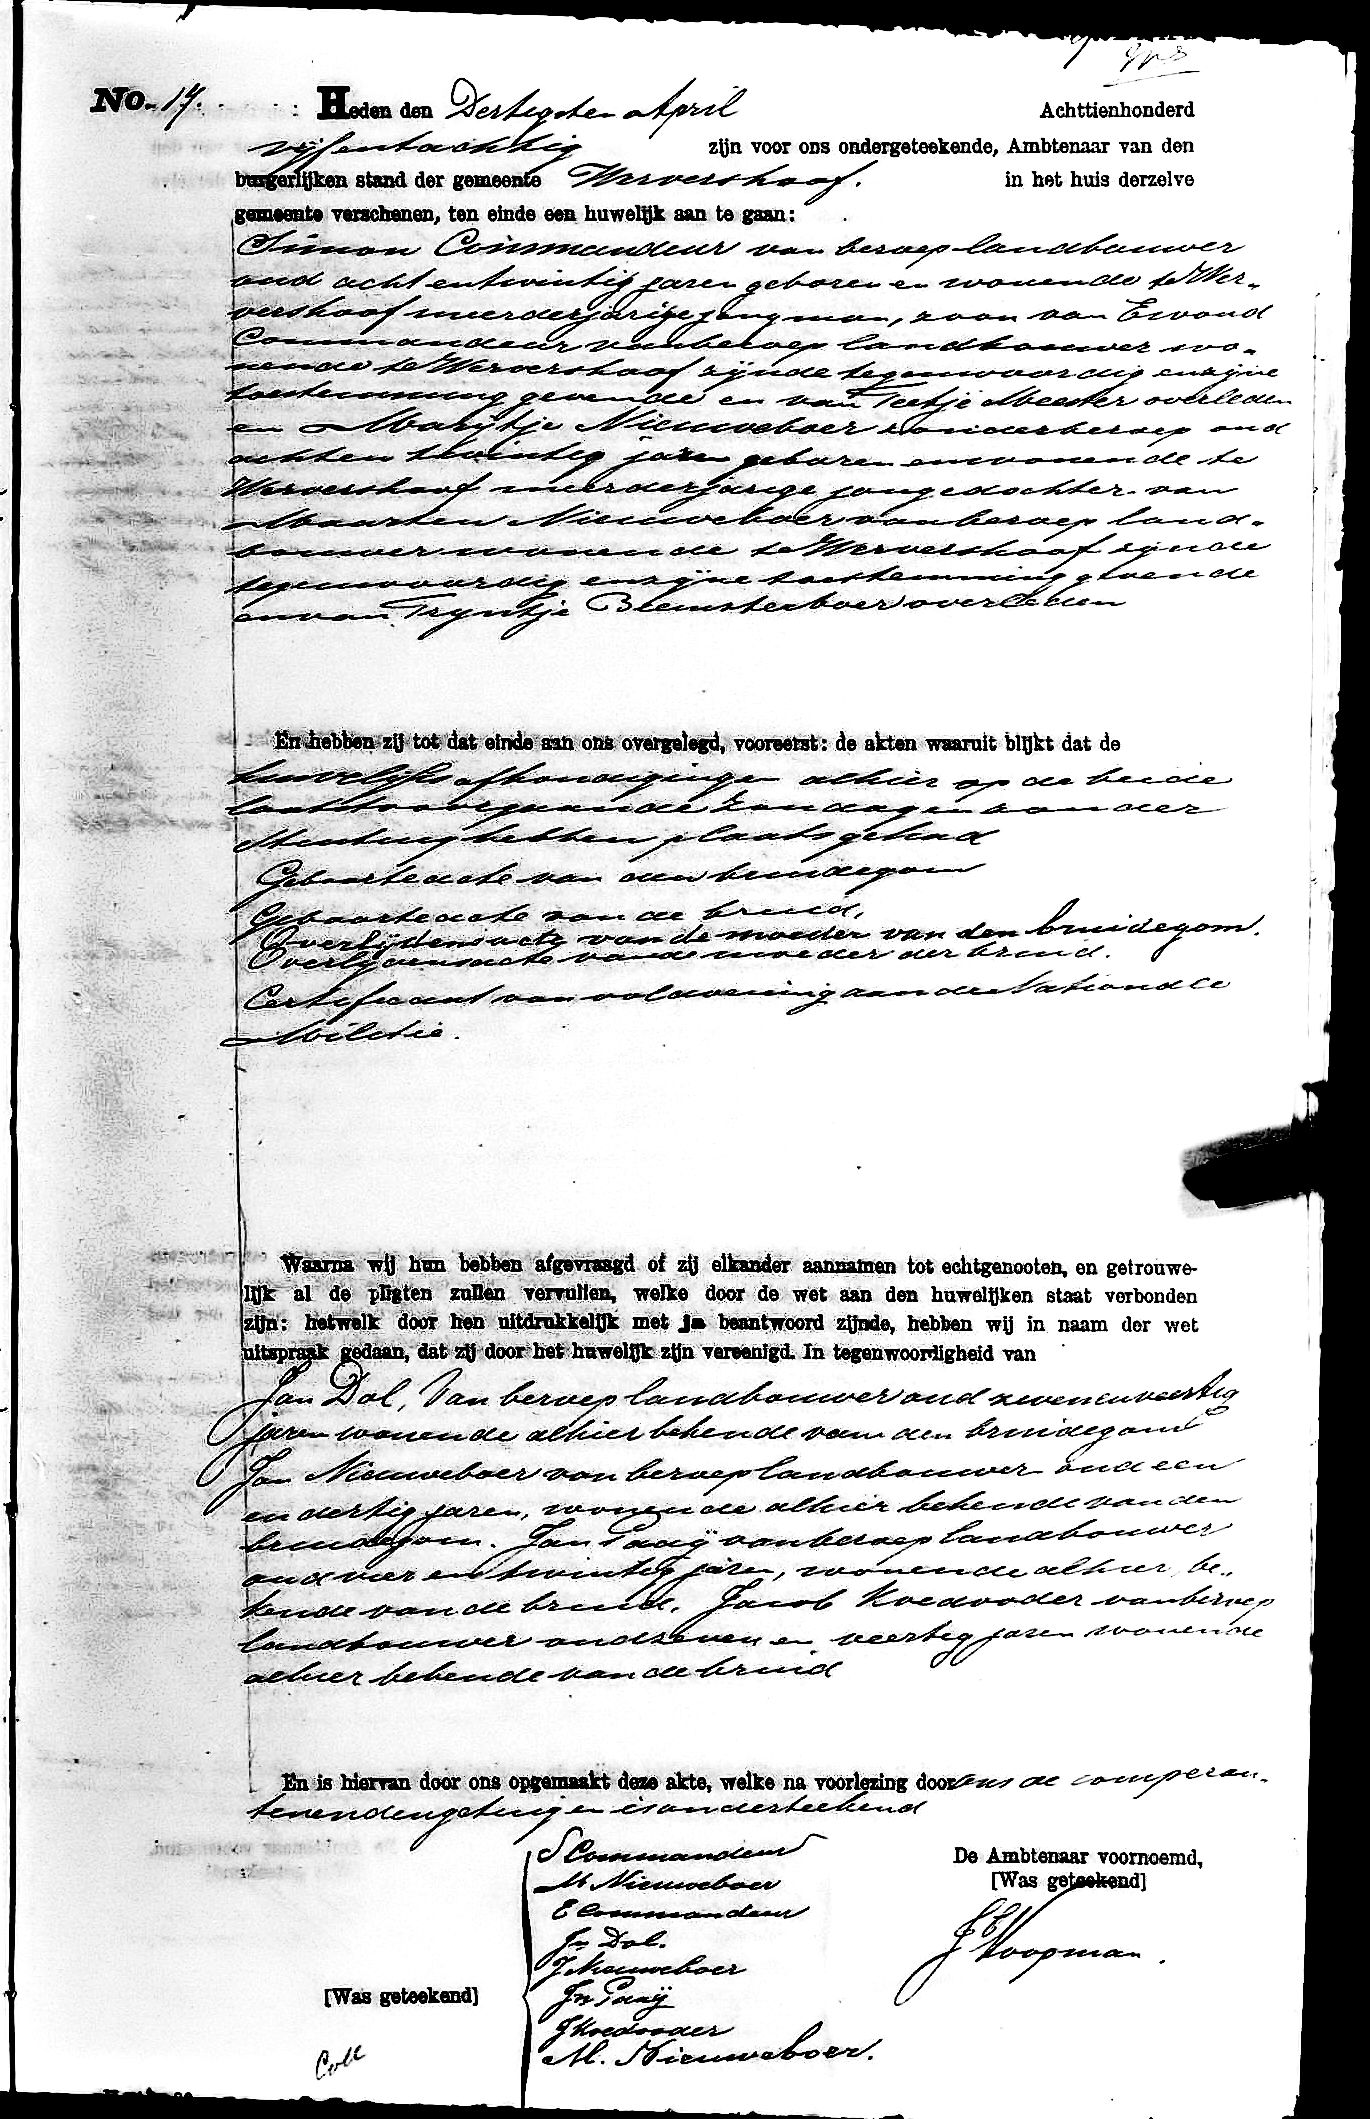 No. 17. Heden den Dertigsten April Achttienhonderd
vijfentachtig zijn voor ons ondergeteekende, Ambtenaar van den
burgerlijken stand der gemeente Wervershoof. in het huis derzelve
gemeente verschenen, ten einde een huwelijk aan te gaan:
Simon Commandeur van beroep landbouwer
oud acht entwintig jaren geboren en wonende te Wer-
vershoof meerderjarige jongman, zoon van Ewoud
Commandeur van beroep landbouwer wo-
nende te Wervershoof zijnde tegenwoordig en zijne
toestemming gevende en van Teetje Meester overleden
en Marijtje Nieuweboer zonder beroep oud
achten twintig jaren geboren en wonende te
Wervershoof meerderjarige jongedochter van
Maarten Nieuweboer van beroep land-
bouwer wonende te Wervershoof zijnde
tegenwoordig en zijne toestemming gevende
en van Trijntje Beemsterboer overleden
En hebben zij tot dat einde aan ons overgelegd, vooreerst: de akten waaruit blijkt dat de
huwelijks afkondigingen alhier op de beide
laatstvoorgaande Zondagen zonder
Stuiting hebben plaats gehad
Geboorteacte van den bruidegom
Geboorteacte van de bruid,
Overlijdensacte van de moeder van den bruidegom.
Overlijdensacte van de moeder der bruid.
Certificaat van voldoening aan de Nationale
Militie.
Waarna wij hun hebben afgevraagd of zij elkander aannamen tot echtgenooten, en getrouwe-
lijk al de pligten zullen vervullen, welke door de wet aan den huwelijken staat verbonden
zijn: hetwelk door hen uitdrukkelijk met ja beantwoord zijnde, hebben wij in naam der wet
uitspraak gedaan, dat zij door het huwelijk zijn vereenigd. In tegenwoordigheid van
Jan Dol, Van beroep landbouwer oud zevenenveertig
jaren wonende alhier bekende van den bruidegom
Jan Nieuweboer van beroep landbouwer oud een
en dertig jaren, wonende alhier bekende van den
bruidegom. Jan Paaij van beroep landbouwer
oud vier en twintig jaren, wonende alhier, be-
kende van de bruid. Jacob Koedooder van beroep
landbouwer oud zeven en veertig jaren wonende
alhier bekende van de bruid
En is hiervan door ons opgemaakt deze akte, welke na voorlezing door ons de comparan-
ten en de getuigen is onderteekend
S Commandeur
M Nieuweboer
E Commandeur
Jn Dol.
J Nieuweboer
Jn Paaij
J Koedooder
M. Nieuweboer.
[Was geteekend]
De Ambtenaar voornoemd,
[Was geteekend]
Koopman.